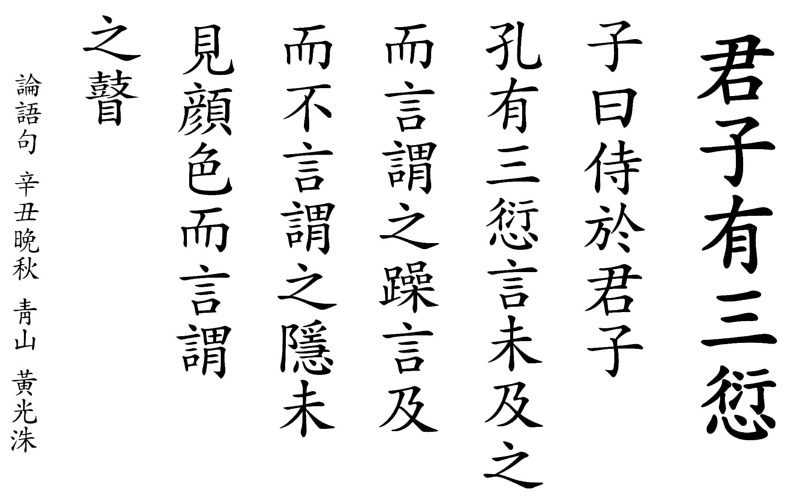 君子有三愆
子曰侍於君子
孔有三愆言未及之
而言謂之躁言及
而不言謂之隱未
見顔色而言謂
之瞽
論語句 辛丑晩秋 靑山 黃光洙